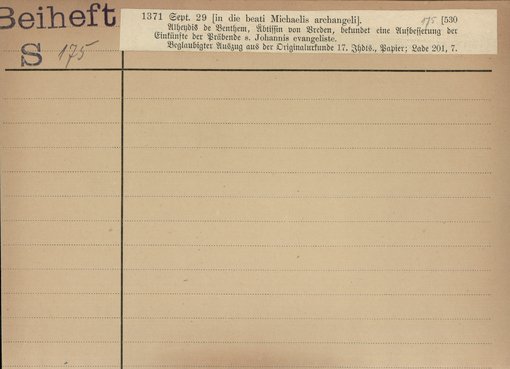 Beiheft
S 175
1371 Sept. 29 [in die beati Michaelis archangeli]. 175 [530
Alheydis de Benthem, Äbtissin von Vreden, bekundet eine Aufbesserung der
Einkünfte der Präbende s. Johannis evangeliste.
Beglaubigter Auszug aus der Originalurkunde 17. Jhdts., Papier; Lade 201, 7.